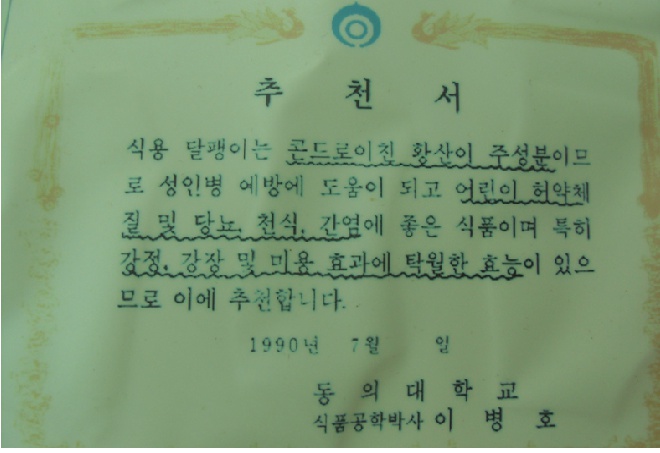 추 천 서
식용 달팽이는 콘드로이친 황산이 주성분이므
로 성인병 예방에 도움이 되고 어린이 허약체
질 및 당뇨, 천식, 간염에 좋은 식품이며 특히
강정, 강장 및 미용 효과에 탁월한 효능이 있으
므로 이에 추천합니다.
1990년 7월 일
동 의 대 학 교
식품공학박사 이 병 호